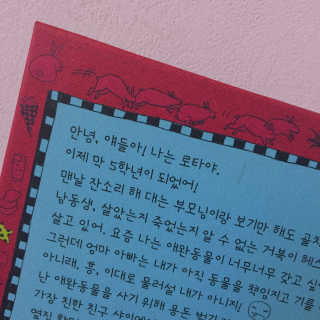 안녕, 얘들아! 나는 로타야.
이제 막 5학년이 되었어!
맨날 잔소리 해 대는 부모님이랑 보기만 해도 골치
남동생, 살았는지 죽었는지 알 수 없는 거북이 헤스
살고 있어. 요즘 나는 애완동물이 너무너무 갖고 싶
그런데 엄마 아빠는 내가 아직 동물을 책임지고 기를
아니래. 흥, 이대로 물러설 내가 아니지!
난 애완동물을 사기 위해 용돈 벌기
가장 친한 친구 샤이엔